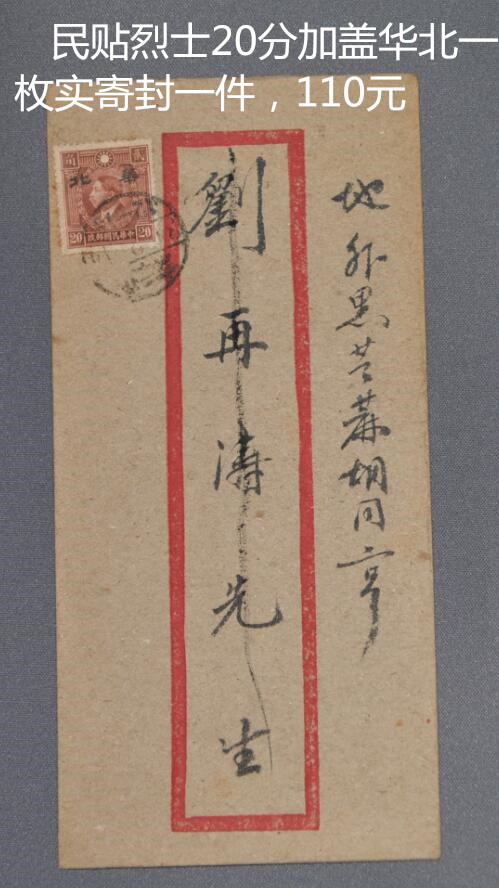 民贴烈士20分加盖华北一
枚实寄封一件，110元
角 貳
北 華
20 政郵國民華中 20
地外黑芝蔴胡同六号
劉再濤先生